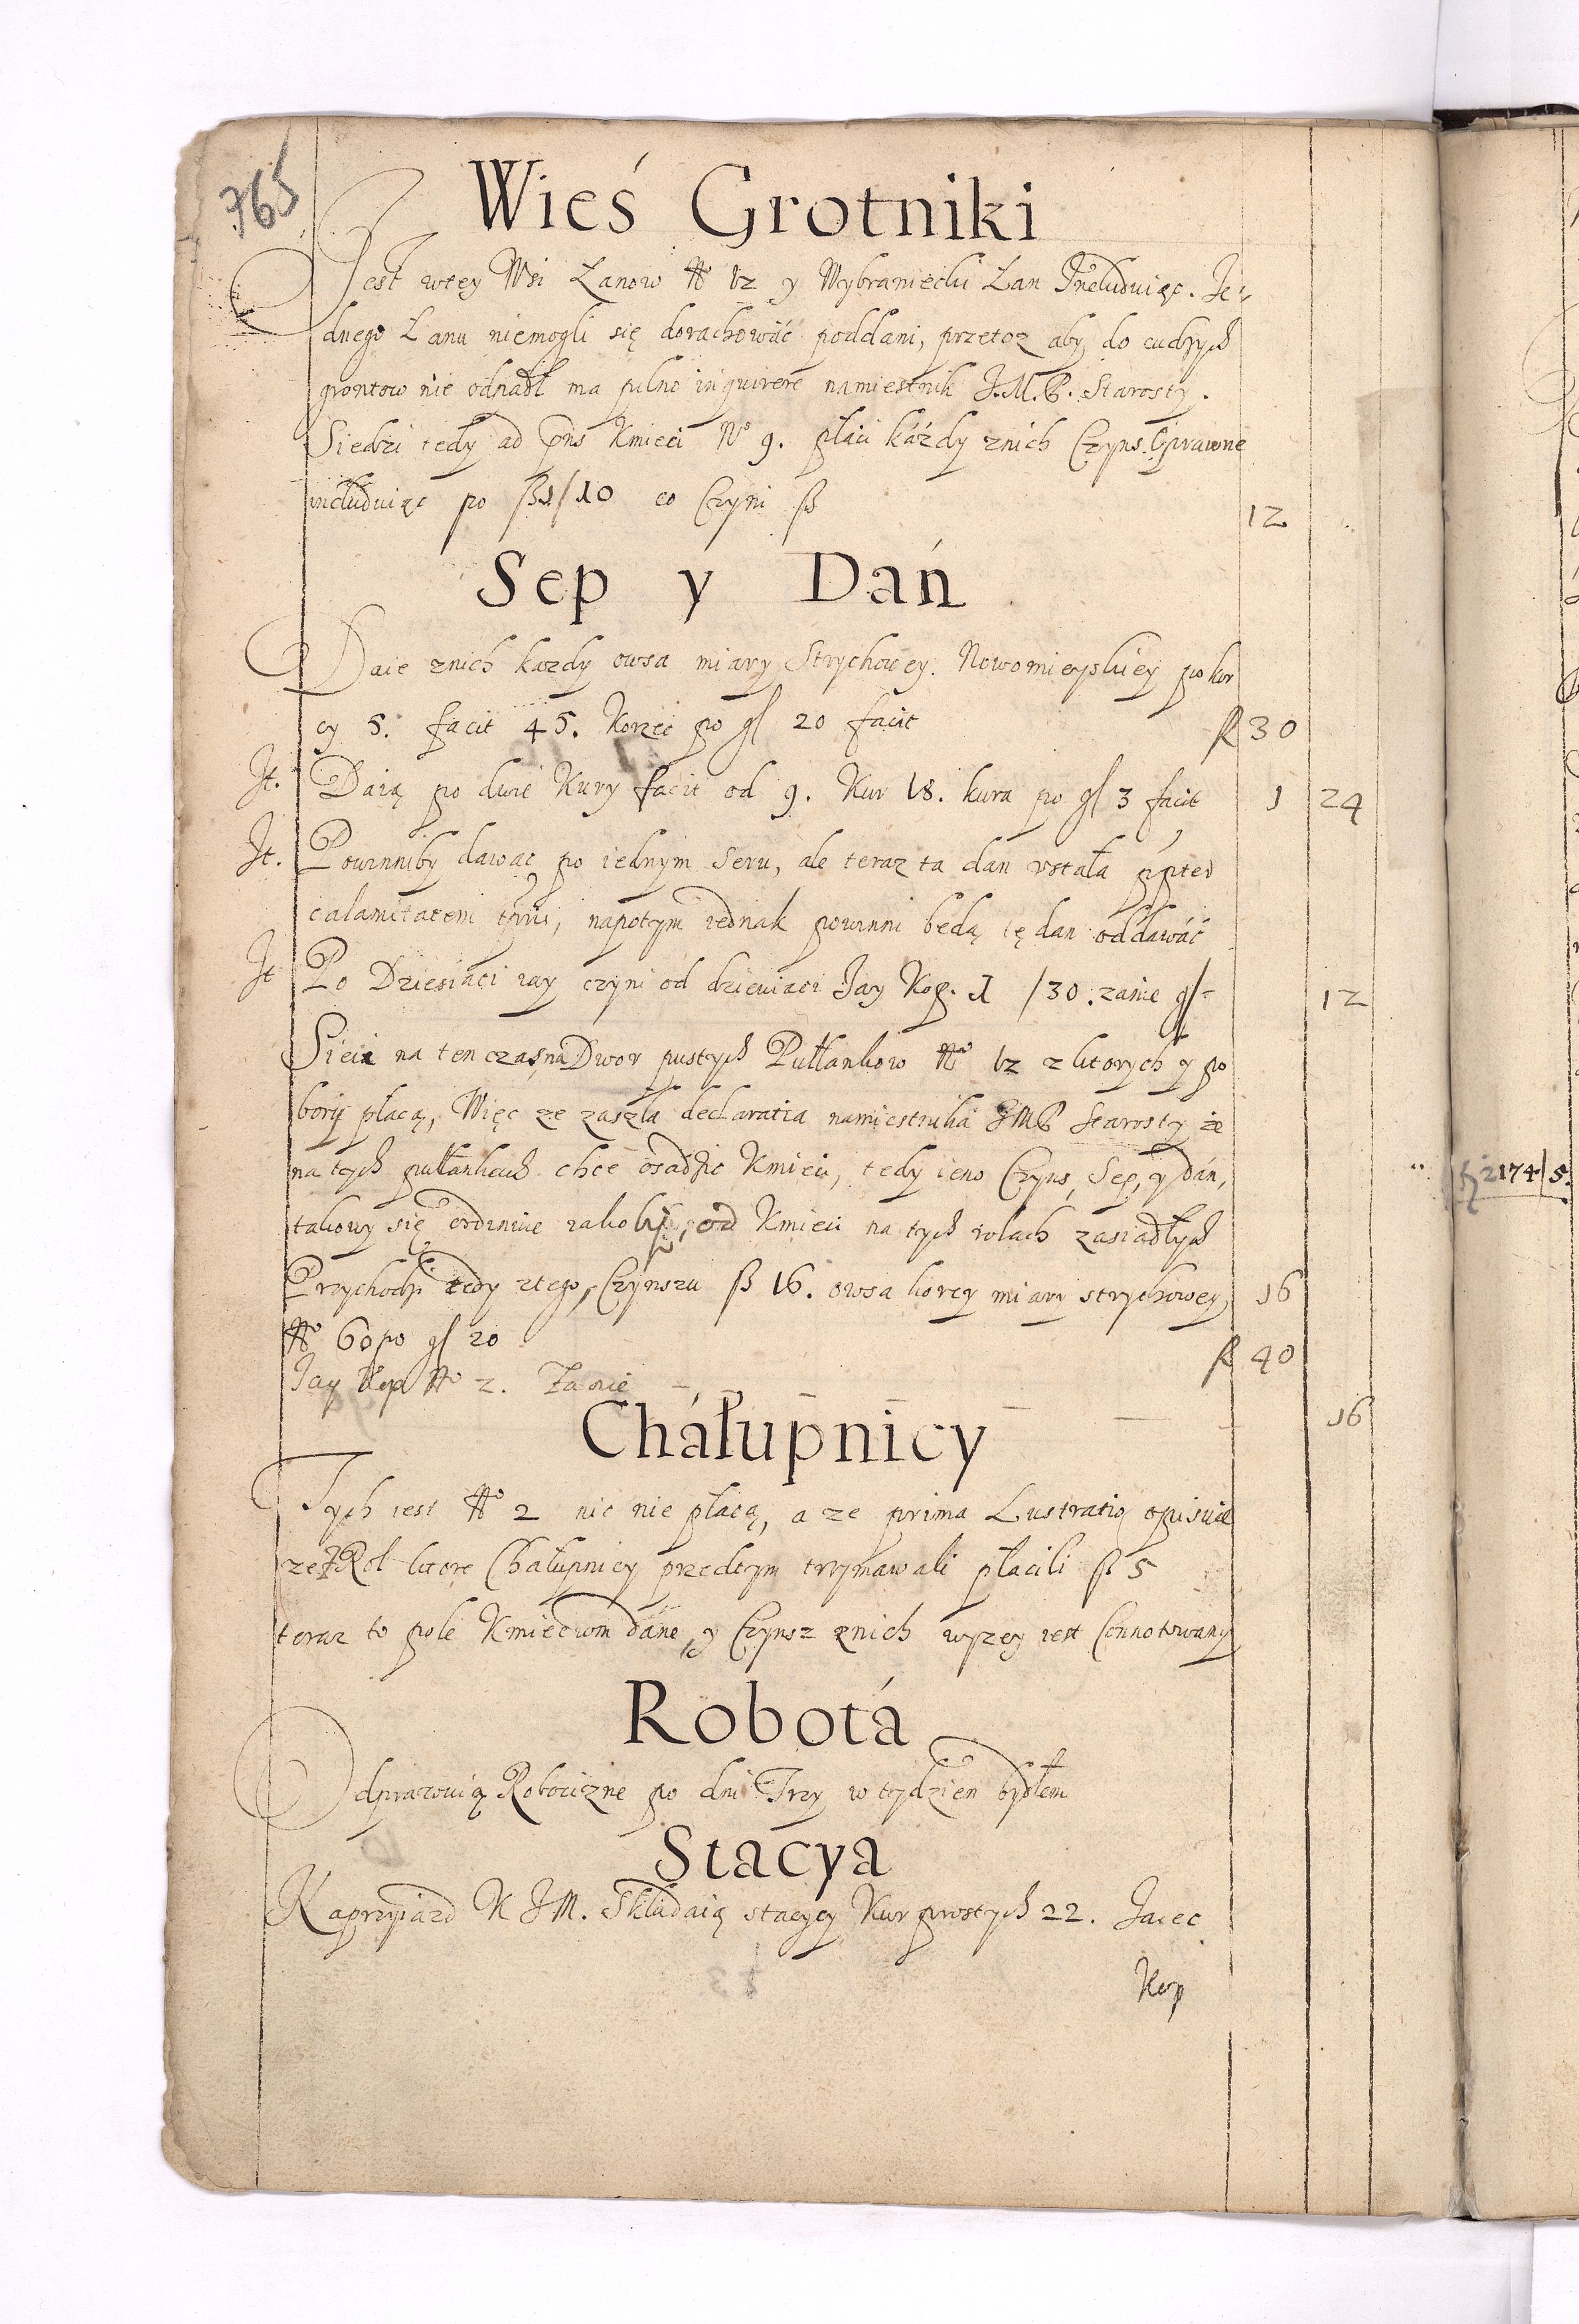 765
Wieś Grotniki
Jest wtey Wsi Łanow No 12 y Wybraniecki Łan Includuiąc. Je-
dnego Łanu niemogli się dorachować poddani, przetoz aby do cudzych
grontow nie odpadł ma pilno inquirere namiestnik J.M.P. Starosty.
Siedzi tedy ad pns Kmieci No 9. płaci káżdy znich Czyns Oprawne
includuiąc po ß 1/10 co Czyni ß 12
Sep y Dań
Daie znich kazdy owsa miary Strychowey. Nowomieyskiey po kor
cy 5. facit 45. Korzec po gl 20 facit ß 30
It. Daią po dwie Kury facit od 9. Kur 18. kura po gl 3 facit 1 24
It. Powinniby dawac po iednym Seru, ale teraz ta dan ustała ppter
calamitatem tpris, napotym iednak powinni będą tę dan oddawáć
It Po Dziesiaci iay czyni od dziewiaci Jay Kop. 1 /30. zanie gl- 12
Sieia na ten czas na Dwor pustych Pułłankow No 12 z ktorych y po
bory płacą, Więc ze zaszła declaratia namiestnika JMP Starosty że
na tych pułłankach chce osadzic Kmieci, tedy ieno Czyns, Sep, y dán,
takowy się ordinuie iako od Kmieci na tych rolach zasiadłych
Przychodzi tedy ztego Czynszu ß 16. owsa korcy miary strychowey, 16
No 60 po gl 20 ß 40
Jay Kop No 2. Zanie - - - - - 16
Cháłupnicy
Tych iest No 2 nic nie płacą, a ze prima Lustratio opisuie
ze z Rol ktore Chałupnicy przedtym trzymawali płacili ß 5
teraz to pole Kmieciom dane, y Czynsz znich wyzey iest Connotowany
Robotá
Odprawuią Robocizne po dni Trzy w tydzien bydłem
Stacya
Na przyiazd K JM. Składaią stacyey Kur prostych 22. Jaiec
Kop
2174 5.